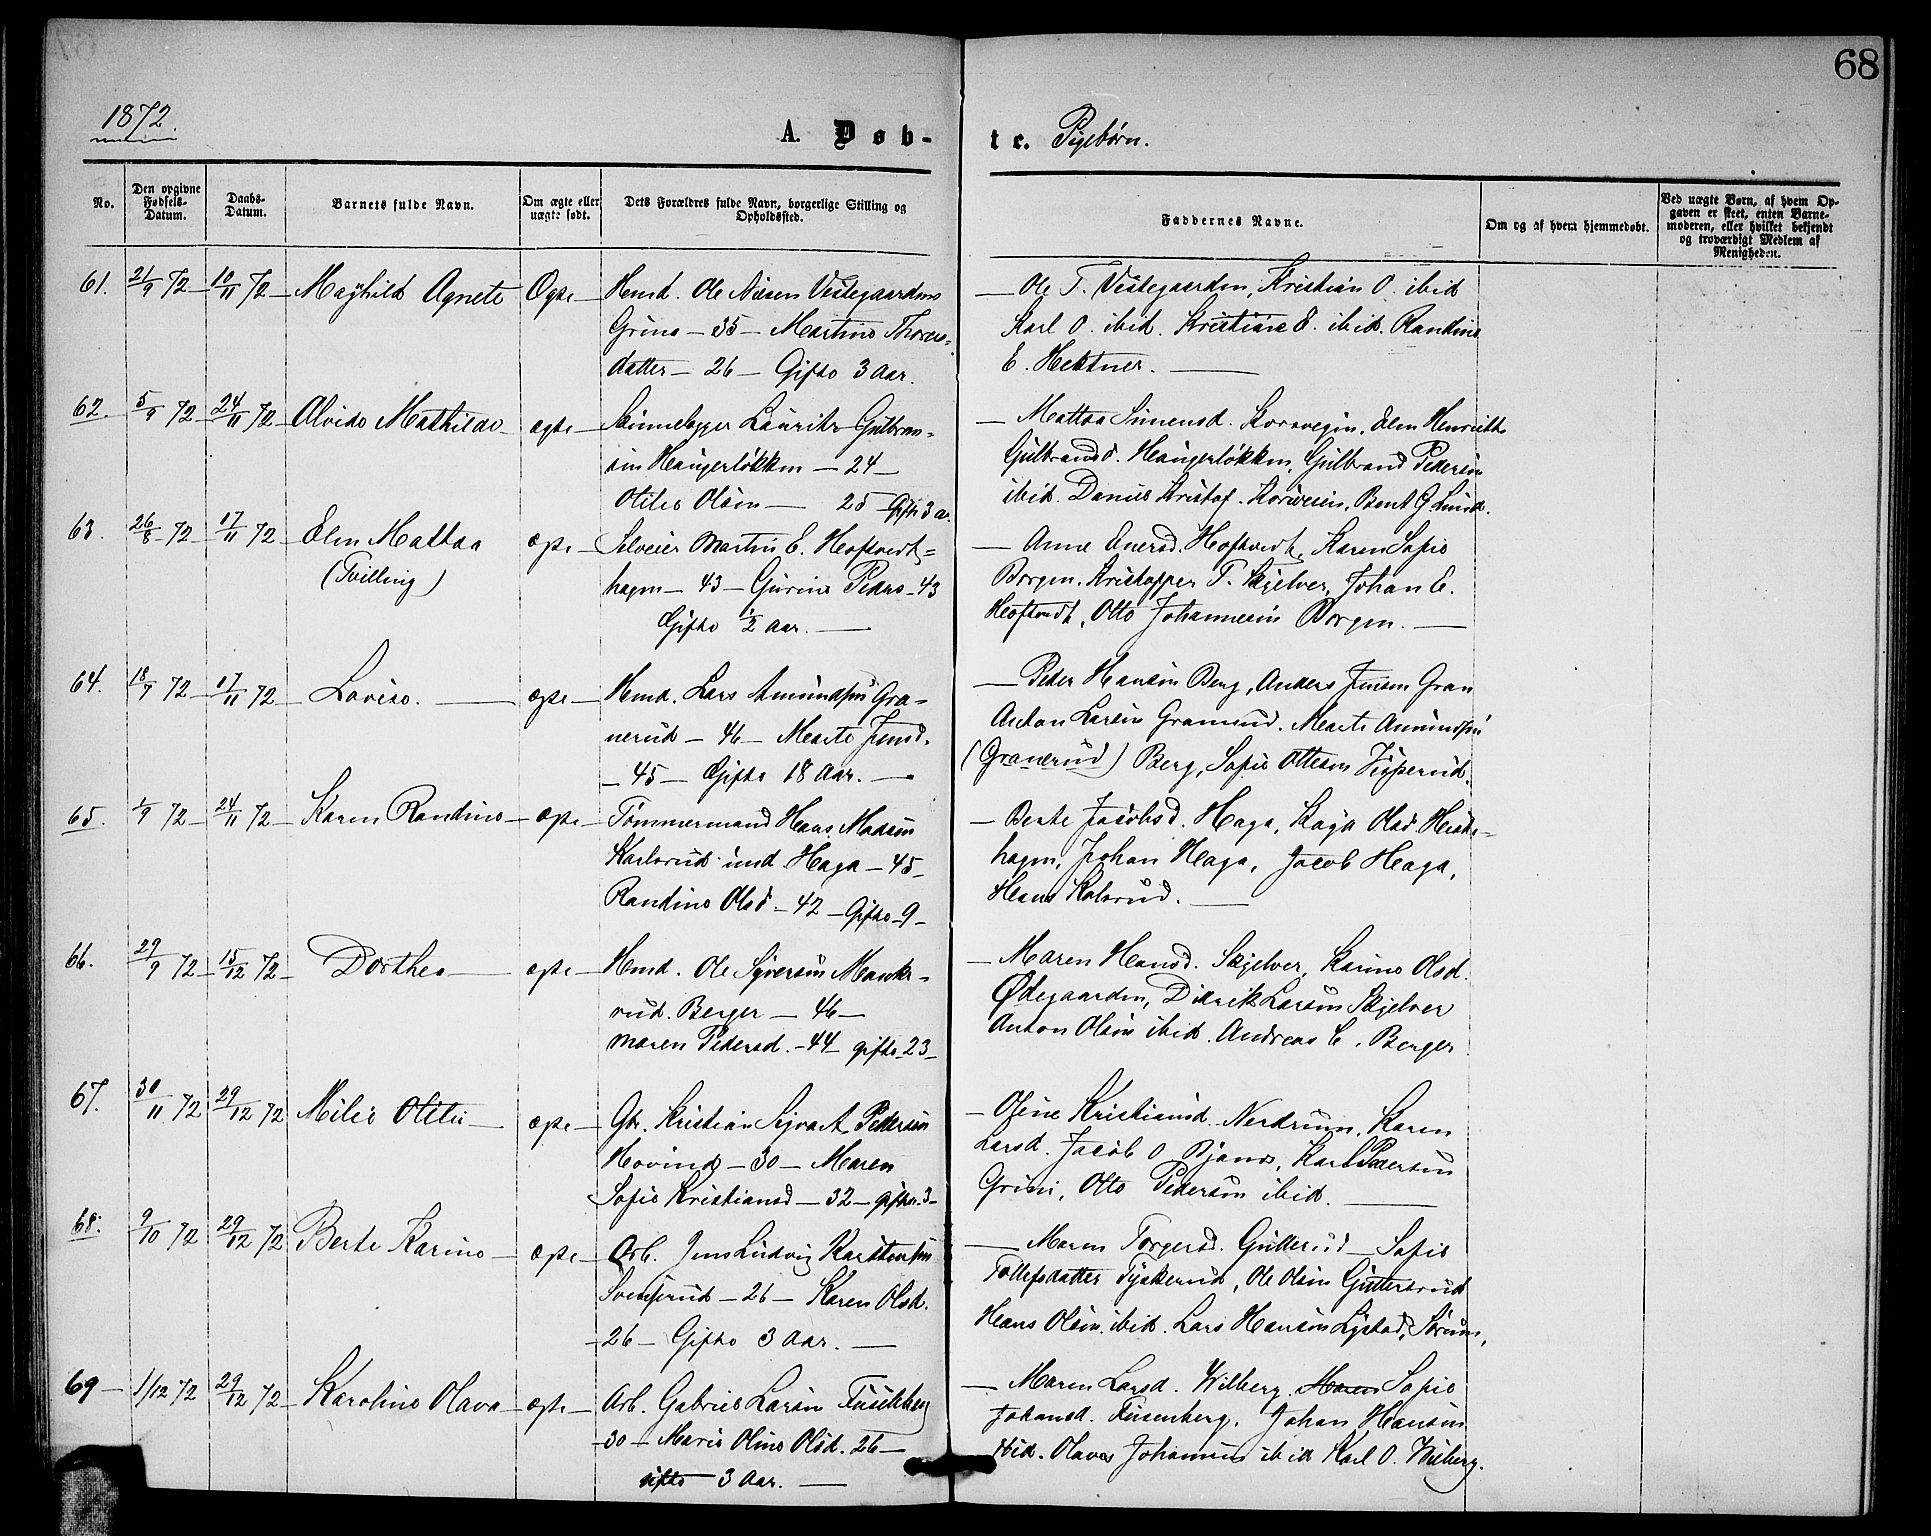 68
1872.
A. Døb-
te. Pigebørn.
No.
Den opgivne Fødsels-Datum.
Daabs-Datum.
Barnets fulde Navn.
Om ægte eller uægte født.
Dets Forældres fulde Navn, borgerlige Stilling og Opholdssted.
Faddernes Navne.
Om og af hvem hjemmedøbt.
Ved uægte Børn, af hvem Opgaven er skeet, enten Barnemoderen, eller hvilket bekjendt og troværdigt Medlem af Menigheden.
61. 21/9 72 10/11 72 Mayhild Agnete Ægte
Hmd. Ole Nilsen Vestegaarden
Grine - 35 - Martine Thores-
datter - 26 - Gifte 3 Aar.
Ole T. Vestegaarden, Kristian O. ibid
Karl O. ibid. Kristiane E. ibid. Randine
E. Hektner.
62. 5/9 72 24/11 72 Alvide Mathilde ægte
Lauritz Gulbran-
sen Haugerløkken - 24 -
Otilie Olsen - 25 Gifte 3 a.
Mattea Simensd. Korsvegen, Elen Henriette
Gulbrandsd. Haugerløkken, Gulbrand Pedersen
ibid. Daniel Kristof. Korsveien, Bent G Lund.
63. 26/8 72 17/11 72 Elen Mattea ægte
(Tvilling)
Selveier Martin E. Hoftvedt-
hagen - 43 - Gurine Peders - 43
Gifte 1/2 Aar.
Anne Enersd. Hoftvedt, Karen Sofie
Borgen. Kristopper P. Skjelver, Johan E.
Hoftvedt, Otto Johannesen Borgen.
64. 18/9 72 17/11 72 Lovise. ægte
Hmd. Lars Amundsen Gra-
nerud - 46 - Marte Jensd.
- 45 - Gifte 18 Aar.
Peder Hansen Berg, Anders Jensen Gran
Anton Larsen Granerud. Marte Amundsen
(Granerud) Berg, Sofie Ottesen
65. 1/9 72 24/11 72 Karen Randine ægte
Tømmermand Hans Madsen
Karlsrud und Haga - 45 -
Randine Olsd - 42 - Gifte - 9 -
Berte Jacobsd. Haga, Kaja Olsd
hagen, Johan Haga, Jacob Haga,
Hans Kalsrud.
66. 29/9 72 15/12 72 Dorthea ægte
Hmd. Ole Syversen Mank-
rud. Berger - 46 -
Maren Pedersd. - 44 - gifte - 23 -
Maren Hansd. Skjelver, Karine Olsd.
Ødegaarden, Didrik Larsen Skjelver
Anton Olsen ibid. Andreas E. Berger
67. 30/11 72 29/12 72 Milie Otilie ægte
Gbr. Kristian Sigvart Pedersen
Hovind - 30 - Maren
Sofie Kristiansd - 32 - gifte - 3 -
Ofine Kristiansd. Nerdrum, Karen
Larsd. Jacob O Karl Pedersen
Grini, Otto Pedersen ibid.
68. 9/10 72 29/12 72 Berte Karine ægte
Arb. Jens Ludvig Karstensen
Svenserud - 26 - Karen Olsd.
- 26 - Gifte 3 Aar.
Maren Torgersd. Sofie
Tollefsdatter Tyskerud, Ole Olsen Guttersrud
Hans Olsen ibid. Lars Hansen Lystad, Sørum,
69 - 1/12 72 29/12 72 Karoline Olava ægte
Arb. Gabriel Larsen
- 30 - Marie Oline Olsd. 26 -
gifte 3 Aar.
Maren Larsd. Wilberg. Maren Sofie
Johansd. Fusenberg. Johan Hansen
ibid. Olaves Johannes ibid Karl O. Wilberg.